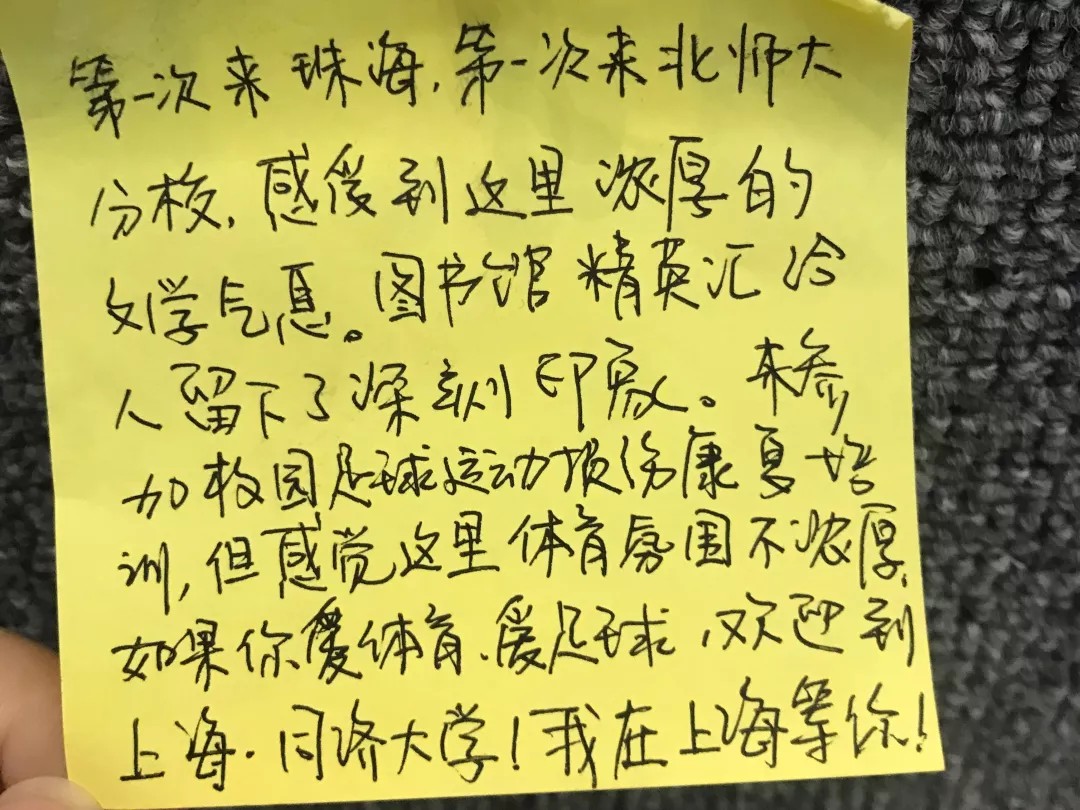 第一次来珠海,第一次来北师大
分校,感受到这里浓厚的
文学气息。图书馆精英汇给
人留下了深刻印象。来参
加校园足球运动损伤康复培
训,但感觉这里体育氛围不浓厚,
如果你爱体育、爱足球,欢迎到
上海·同济大学!我在上海等你!